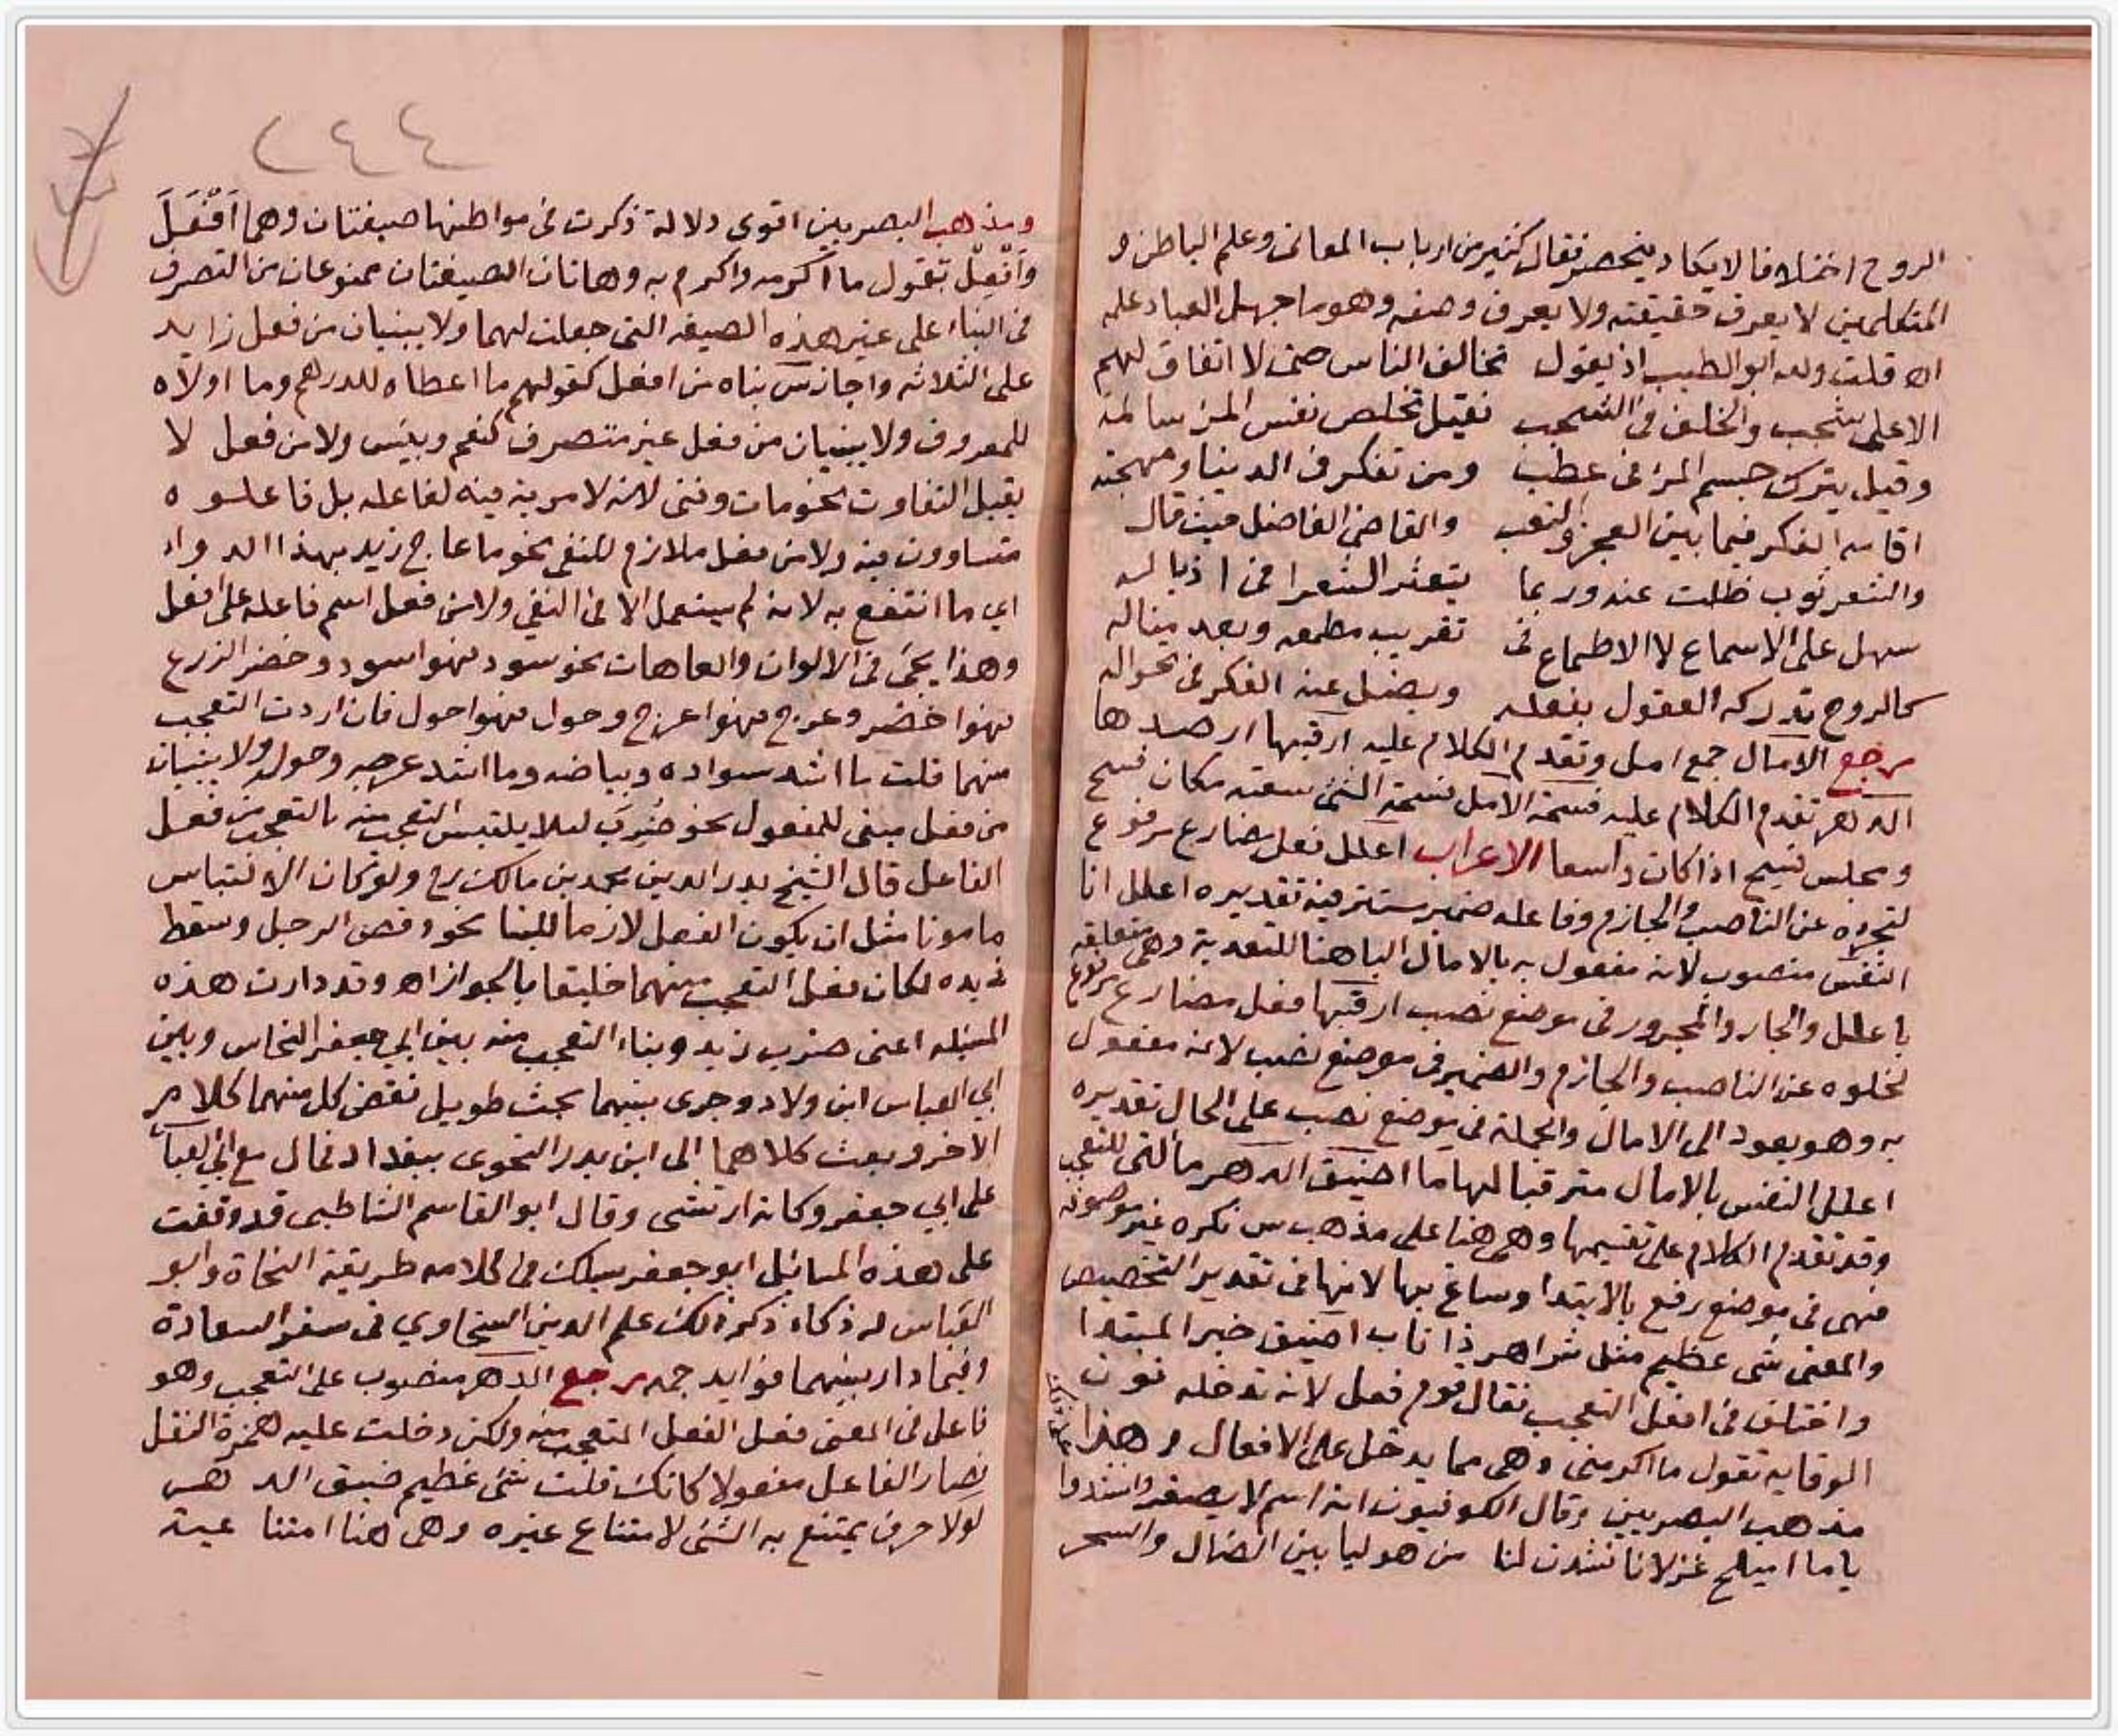 الروح اختلافا لا يكاد ينحصر فقال كثير من ارباب المعاني وعلم الباطن و
المتكلمين لا يعرف حقيقته ولا يعرف وصفه وهو ما جهل العباد علمه
قلت ولله ابو الطيب اذ يقول تخالف الناس حتى لا اتفاق لهم
الا على شجب والخلف في الشجب فقيل تخلص نفس المرء سالمة
وقيل يترك جسم المرء في عطب ومن تفكر في الدنيا ومهجته
اقامه الفكر فيما بين العجز والتعب والقاضي الفاضل حيث قال
والشعر ثوب ظلت عند وربما يتعثر الشعرا في اذياله
سهل على الاسماع لا الاطماع في تقريب مطمعه وبعد مناله
كالروح تدركه العقول بفعله ويضل عنه الفكر في تحواله
رجع الامال جمع امل وتقدم الكلام عليه ارقبها ارصدها
الدهر تقدم الكلام عليه فسحة الامل فسحة الشي سعته مكان فسح
ومجلس فسيح اذا كان واسعا الاعراب اعلل فعل مضارع مرفوع
لتجرده عن الناصب والجازم وفاعله ضمير مستتر فيه تقديره اعلل انا
النفس منصوب لانه مفعول به بالامال الباهنا للتعدية وهي متعلقه
باعلل والجار والمجرور في موضع نصب ارقبها فعل مضارع مرفوع
لخلوه عن الناصب والجازم والضمير في موضع نصب لانه مفعول
به وهو يعود الى الامال والجملة في موضع نصب على الحال تقديره
اعلل النفس بالامال مترقبا لها ما اضيق الدهر ما التي للتعجب
وقد تقدم الكلام على تقسيمها وهي هنا على مذهب س نكره غير موصوفه
فهى في موضع رفع بالابتدا وساغ بها لانها في تقدير التخصيص
والمعنى شى عظيم مثل شر اهر ذا ناب اضيق خبر المبتدا
واختلف في افعل التعجب فقال قوم فعل لانه تدخله نون
الوقايه تقول ما اكرمنى وهى مما يدخل على الافعال وهذا
مذهب البصريين وقال الكوفيون انه اسم لا يصغر وانشدوا
ياما اميلح غزلانا شدن لنا من هوليا بين الضال والسمر
٢٤٤
ومذهب البصريين اقوى دلالة ذكرت في مواطنها صيغتان وهما اَفْعَلَ
واَفْعِلْ تقول ما اكرمه واكرم به وهاتان الصيغتان ممنوعان من التصرف
في البناء على غير هذه الصيغه التي جعلت لهما ولا يبنيان من فعل زايد
على الثلاثه واجاز س بناه من افعل كقولهم ما اعطاه للدرهم وما اولاه
للمعروف ولا يبنيان من فعل غير متصرف كنعم وبئس ولا من فعل لا
يقبل التفاوت نحو مات وفنى لانه لا مزية فيه لفاعله بل فاعلوه
متساوون فيه ولا من فعل ملازم للنفى نحو ما عاج زيد بهذا الدواء
اي ما انتفع به لانه لم يستعمل الا في النفي ولا من فعل اسم فاعله على افعل
وهذا يجئ في الالوان والعاهات نحو سود فهو اسود وخضر الزرع
فهو اخضر وعرج فهو اعرج وحول فهو احول فان اردت التعجب
منهما قلت ما اشد سواده وبياضه وما اشد عرجه وحوله ولا يبنيان
من فعل مبنى للمفعول نحو ضُرِبَ ليلا يلتبس التعجب منه بالتعجب من فعل
الفاعل قال الشيخ بدر الدين محمد بن مالك رح ولو كان الالتباس
مامونا مثل ان يكون الفعل لازما للبنا نحو وقص الرجل وسقط
في يده لكان فعل التعجب منهما خليقا بالجواز اه وقد دارت هذه
المسئله اعنى ضرب زيد وبناء التعجب منه بين ابي جعفر النحاس وبين
ابي العباس ابن ولاد وجرى بينهما بحث طويل نقض كل منهما كلام
الاخر وبعث كلاهما الى ابن بدر النحوى ببغداد فمال مع ابي العبا
على ابي جعفر وكانه ارتشى وقال ابو القاسم الشاطبى قد وقفت
على هذه المسائل ابو جعفر يسلك في كلامه طريقة النحاة وابو
العباس له ذكاء ذكر ذلك علم الدين السخاوي في سفر السعادة
وفيما دار بينهما فوايد جمه رجع الدهر منصوب على التعجب وهو
فاعل في المعنى فعل الفعل المتعجب منه ولكن دخلت عليه همزة النقل
فصار الفاعل مفعولا كانك قلت شئ عظيم ضيق الدهر
لولا حرف يمتنع به الشئ لامتناع غيره وهى هنا امتناعية